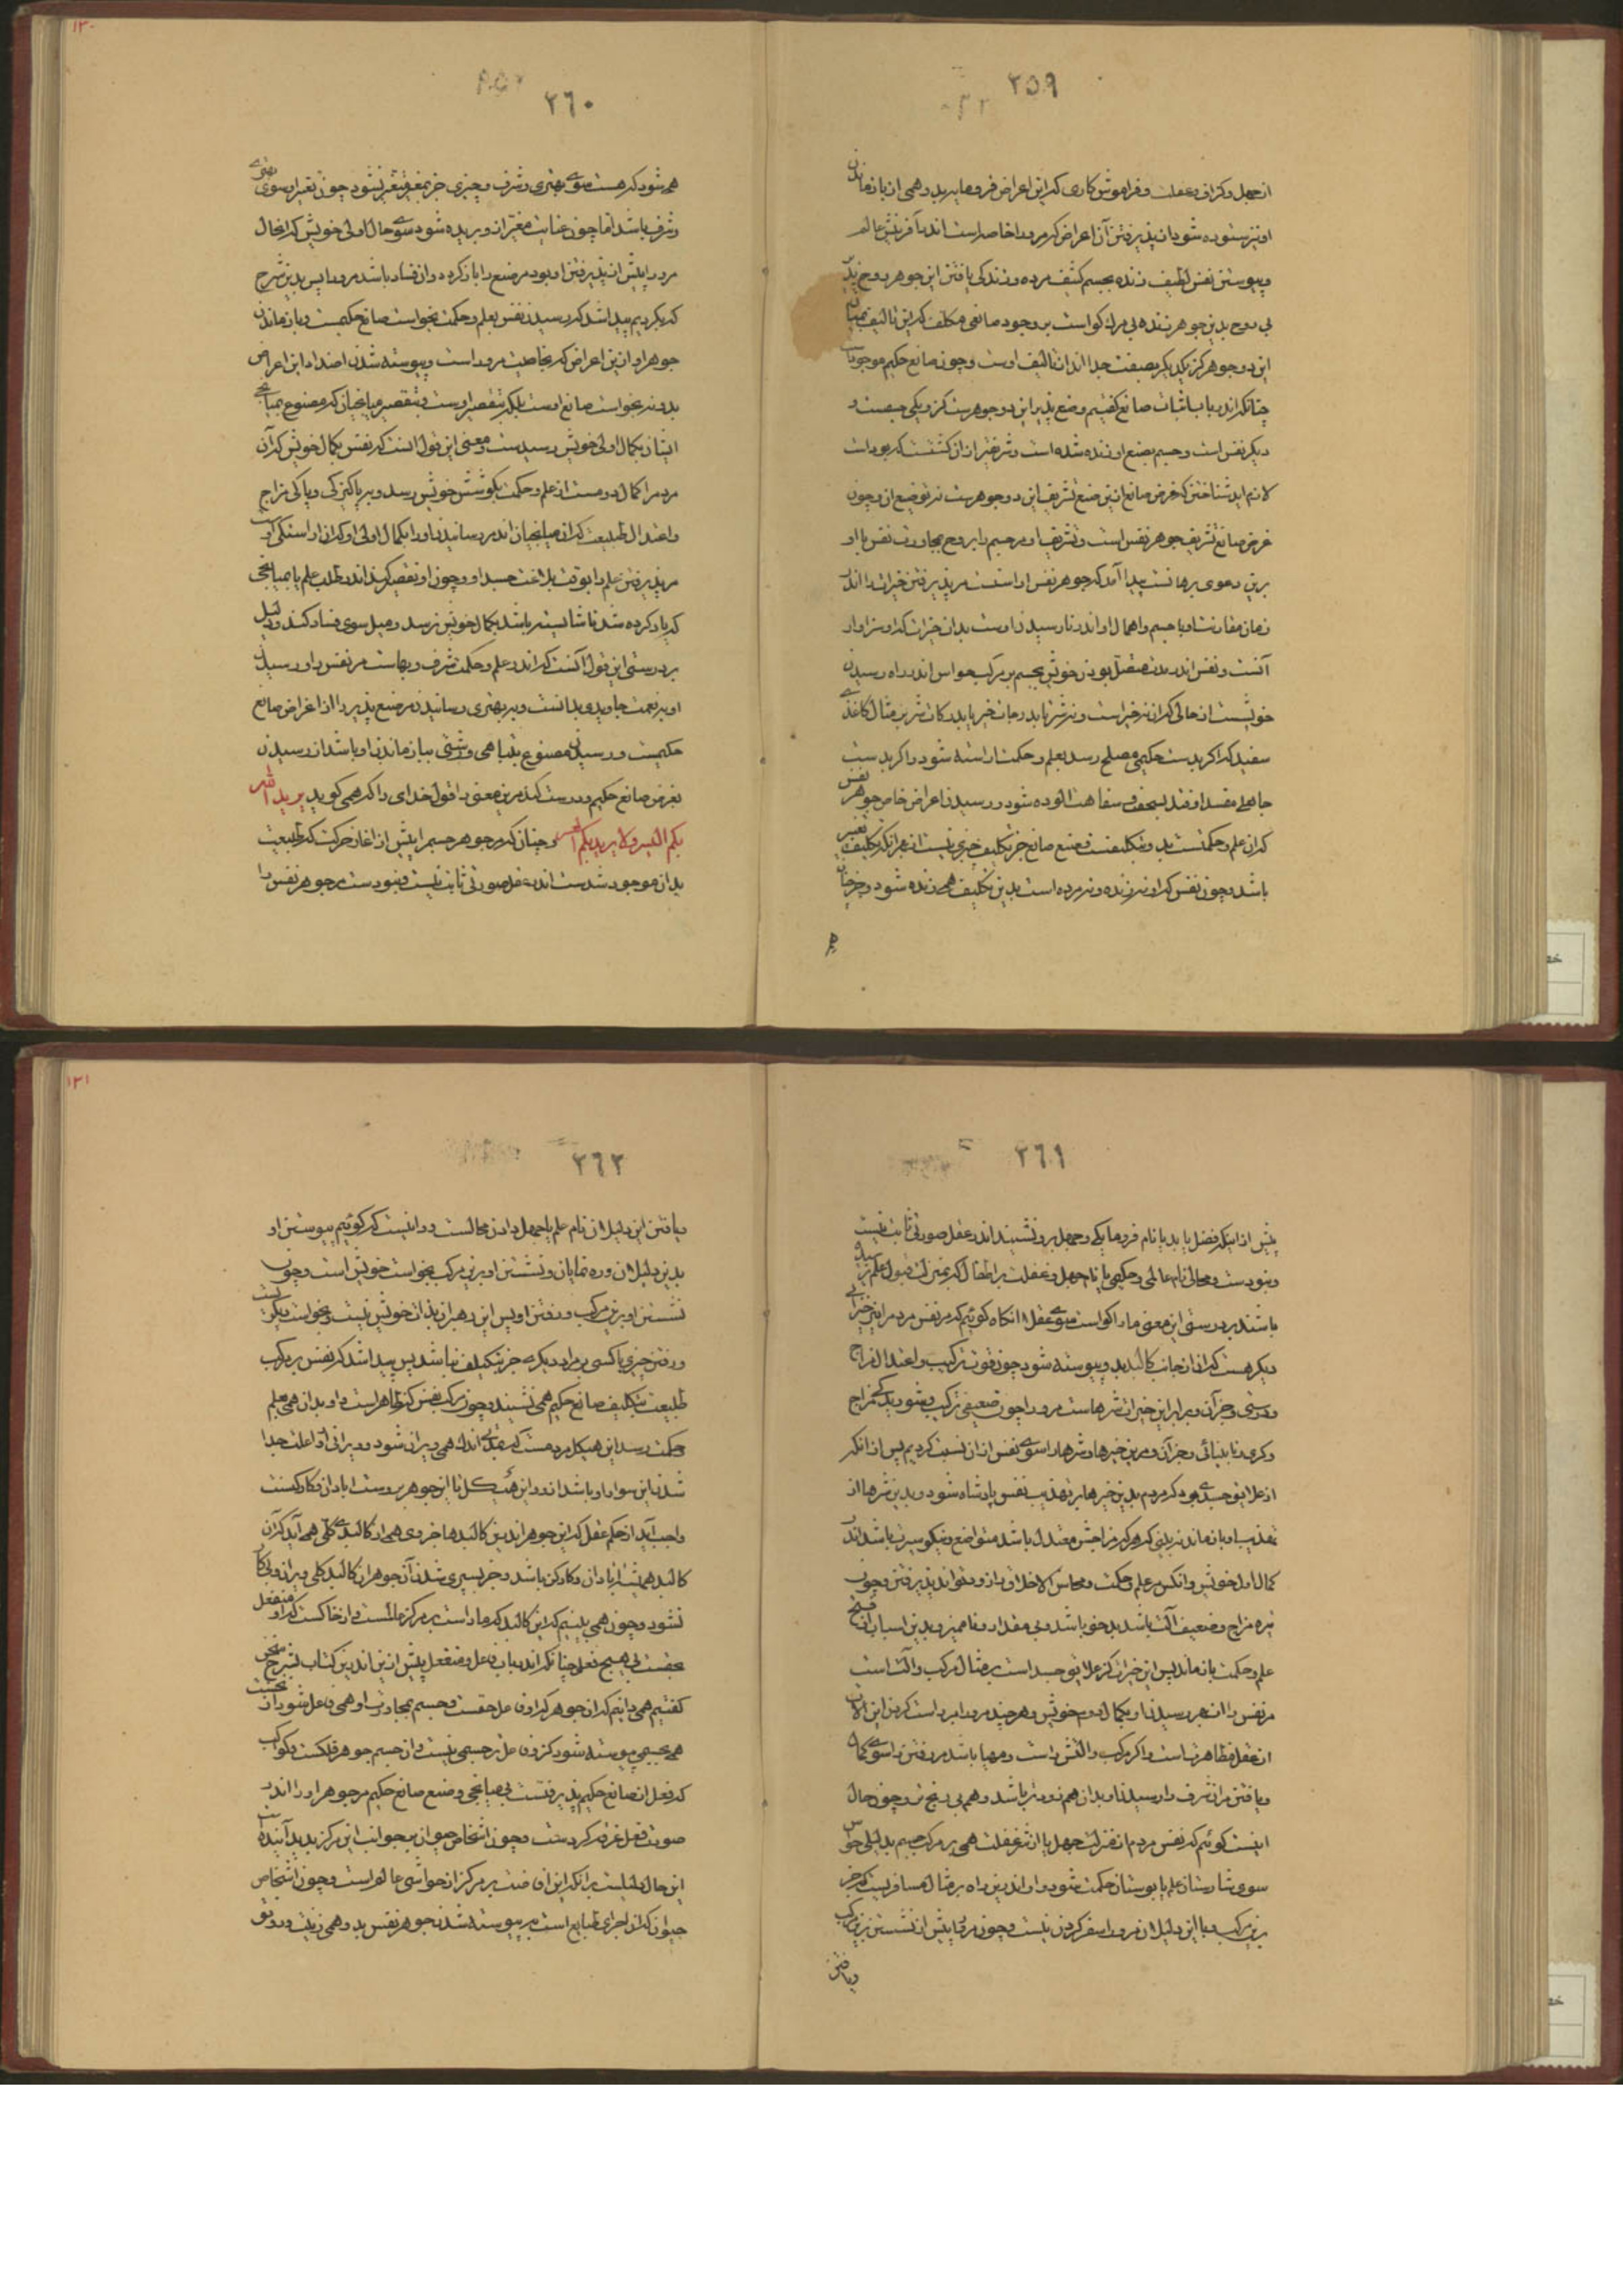 ۲۵۹
از جهل و گزاف و غفلت و فراموش کاری که این اعراض فرومایه پدید همی از بازماندن
او نیز ستوده شود از پذیرفتن آن اعراض که مرو را خاصه است اندر آفرینش عالم
و پیوستن نفس لطیف زنده بجسم کثیف مرده و زندگی یافتن این جوهر روح پذیر
بی روح بدین جوهر زنده بی مرگ گواست بر وجود صانعی مکلف که این تالیف میان
این دو جوهر کز یکدیگر بصفت جدااند از تالیف اوست و چون صانع حکیم موجودست
چنانکه اندر باب اثبات صانع گفتیم و صنع پذیر این دو جوهرست کز و یکی جسمست و
دیگر نفس است و جسم بصنع او زنده شده است و شریفتر از آن گشتست که بودست
لازم اید شناختن که غرض صانع ازین صنع تشریف این دو جوهرست نه توضیع از و چون
غرض صانع تشریف جوهر نفس است و تشریف او مر جسم را بروح بمجاورت نفس با او
برین دعوی برهانست پیدا آمد که جوهر نفس اراستست مر پذیرفتن خیرات را اندر
زمان مقارنت او با جسم و اهمال او اندر نارسیدن اوست بدان خیرات که او سزاوار
آنست و نفس اندر مدت متصل بودن خویش بجسم بر مرکب حواس اندر راه رسیدن
خویشست از حالی که آن نه خیر است و نه شر یا بدرجات خیر یا بدرکات شر بر مثال کاغذی
سفید که اگر بدست حکیمی مصلح رسد بعلم و حکمت اراسته شود و اگر بدست
جاهلی مفسد اوفتد بسخف و سفاهت آلوده شود و رسیدن اعراض خاص جوهر نفس
که آن علم و حکمتست بدو بتکلیفست و صنع صانع جز تکلیف چیزی نیست از بهر آنکه تکلیف تغییر
باشد و چون نفس که او نه زنده و نه مرده است بدین تکلیف همی زنده شود و خرد
۲۶۰
همی شود که هست سوی بهتری و شرف و چیزی جز بمغیر متغیر نشود چون تغیر او سوی بهتری
و شرف باشد اما چون عنایت مغیر از و بریده شود سوی حال اولی خویش که آن حال
مرو را پیش از پذیرفتن او بود مر صنع را باز گردد و آن فساد باشد مرو را پس بدین شرح
که بکردیم پیدا شد که رسیدن نفس بعلم و حکمت بخواست صانع حکیمست و بازماندن
جوهر او از این اعراض که بخاصیت مرو راست و پیوسته شدن اضداد این اعراض
بدو نه بخواست صانع اوست بلکه بتقصیر اوست و بتقصیر میانجیان که مصنوع بمیانجی
ایشان بکمال اولی خویش رسیدست و معنی این قول انست که نفس بکمال خویش که آن
مرو را کمال دومست از علم و حکمت بکوشش خویش رسد و بر پاکیزگی و پاکی مزاج
و اعتدال طبیعت که آن میانجیان اند بر رسانیدن او را بکمال اولی او که آن اراستگی اوست
مر پذیرفتن علم را بوقت بلاغت جسد او و چون او تقصیر کند اندر طلب علم یا میانجی
که یاد کرده شد ناشایسته باشد بکمال خویش نرسد و میل سوی فساد کند و دلیل
بر درستی این قول آنست که اندر علم و حکمت شرف و بهاست مر نفس را و رسیدن
او بنعمت جاویدی بدانست و بهتری رسانیدن مر صنع پذیر را از اغراض صانع
حکیمست و رسیدن مصنوع بتباهی و زشتی بباز ماندن او باشد از رسیدن
بغرض صانع حکیم و درست کند مرین معنی را قول خدای را که همی گوید یرید الله
بکم الیسر ولا یرید بکم العسر و چنان که مر جوهر جسم را پیش از اغاز حرکت که طبیعت
بدان موجود شدست اندر عقل صورتی ثابت نیست و نبودست مر جوهر نفس را
۲۶۱
پیش از آنکه فضل یابد یا نام فرومایگی و جهل برو نشیند اندر عقل صورتی ثابت نیست
و نبودست و محال نام عالمی و حکیمی یا نام جهل و غفلت بر اطفال که بمنزلت قبول علم نرسیده
باشند بر درستی این معنی ما را گواست سوی عقلا انگاه گوئیم که مر نفس مردم را نیز خیراتی
دیگر هست که آن از جانب کالبد بدو پیوسته شود چون قوت ترکیب و اعتدال مزاج
و درستی و جز آن و برابر این خیرات شرهاست مرو را چون ضعیفی ترکیب و شوریدگی مزاج
و کری و نابینائی و جز آن و مرین خیرها و شرها را سوی نفس از آن نسبت کردیم پس از انکه
از علایق جسدی بود که مردم بدین خیرها بر تهذیب نفس پادشاه شود و بدین شرها از
تهذیب او بازماند نه بینی که هر که مزاجش معتدل باشد متواضع و نیکو سیرت باشد اندر
کمال اول خویش و انکس مر علم و حکمت و محاسن الاخلاق را زودتر تواند پذیرفتن و چون
تیره مزاج و ضعیف آلت باشد بدخو باشد و بی مقدار و نامیز و بدین اسباب از
علم و حکمت بازماند پس این خیرات کز علایق جسد است بر مثال مرکب و آلت است
مر نفس را از بهر رسیدن او بکمال دوم خویش و هر چند مرو را براست کردن این آلات
از عقل مظاهرتست و اگر مرکب و آلتش راست و مهیا باشد مر رفتن را سوی کمال
و یافتن مر آن شرف را رسیدن او بدان هم زودتر باشد و هم بی رنج تر و چون حال
اینست گوئیم که نفس مردم از منزلت جهل یا از شر غفلت همی بر مرکب جسم بدلیلی حواس
سوی شارستان علم یا بوستان حکمت شود و او اندرین راه بر مثال مسافریست که جز
برین مرکب و با این دلیلان مرو را سفر کردن نیست و چون مرد پیش از نشستن برین مرکب
و یافتن
۲۶۲
و یافتن این دلیلان نام علم یا جهل دادن محالست و روا نیست که گوئیم پیوستن او
بدین دلیلان و ره نمایان و نشستن او برین مرکب بخواست خویش است و چون
نشستن او برین مرکب و رفتن او پس این رهبران بذات خویش نیست و بخواست دیگریست
و رفتن چیزی یا کسی بر مراد دیگری جز بتکلیف نباشد پس پیدا شد که نفس بر مرکب
طبیعت بتکلیف صانع حکیم همی نشیند و چون مرکب نفس کز ظاهر است و او بدان همی بعلم
و حکمت رسد این هیکل مردمست که بمدتی اندک همی ویران شود و ویرانی او را علت جدا
شدن این سوار او باشد از و و این هیکل تا این جوهر بدوست ابادان و کارکنست
واجب آید از حکم عقل که این جوهر اندرین کالبدها جزوی همی از کالبدی کلی همی آید که آن
کالبد همیشه ابادان و کارکن باشد و جز بسپری شدن آن جوهر آن کالبد کلی ویران و بی کار
نشود و چون همی بینیم که این کالبد که ما راست بر مرکز عالمست و از خاکست که او منفعل
بحقست بی هیچ فعل چنانکه اندر باب فاعل و منفعل پیش ازین اندرین کتاب بشرح سخن
گفتیم همی دانیم که آن جوهر که او فاعل حقست و جسم بمجاورت او همی فاعل شود از نخست
همی بجسمی پیوسته شود کز و فاعلتر جسمی نیست و آن جسم جوهر فلکست و کواکب
که فعل از صانع حکیم پذیرفتست بی میانجی و صنع صانع حکیم مر جوهر او را اندر
صورت فعل غرقه کردست و چون اشخاص حیوان بر جوانب این مرکز پدید آینده است
این حال دلیلست بر آنکه این افاضت بر مرکز از حواشی عالم است و چون اشخاص
حیوان که از اجزای طبایع است بر پیوسته شدن جوهر نفس بدو همی زینت و رونق